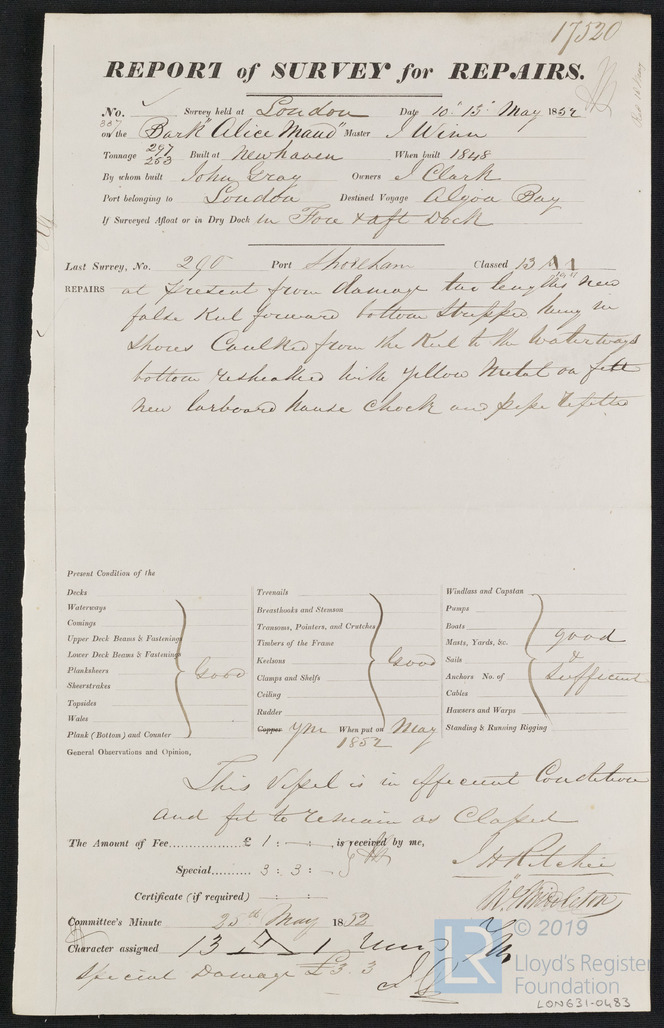 17520
REPORT of SURVEY for REPAIRS.
No. Survey held at London Date 10th 15th May 1852
337
on the Bark "Alice Maud" Master J Winn
Tonnage 297 263 Built at Newhaven When built 1848
By whom built John Gray Owners J Clark
Port belonging to London Destined Voyage Algoa Bay
If Surveyed Afloat or in Dry Dock in Fore & aft Dock
Last Survey, No. 290 Port Shoreham Classed 13 A 1
REPAIRS at present from damage two lengths new
false Keel forward bottom Stripped hung in
Shores Caulked from the Keel to the Waterways
bottom resheathed with yellow Metal on felt
new larboard hause Chock and pipe refitted
Present Condition of the
Decks
Waterways
Comings
Upper Deck Beams & Fastenings
Lower Deck Beams & Fastenings
Planksheers
Sheerstrakes
Topsides
Wales
Plank (Bottom) and Counter
Good
Treenails
Breasthooks and Stemson
Transoms, Pointers, and Crutches
Timbers of the Frame
Keelsons
Clamps and Shelfs
Ceiling
Rudder
Good
Copper YM When put on May
1852
Windlass and Capstan
Pumps
Boats
Masts, Yards, &c.
Sails
Anchors No. of
Cables
Hawsers and Warps
Standing & Running Rigging
good
&
Sufficient
General Observations and Opinion,
This Vessel is in efficient Condition
and fit to remain as Classed
The Amount of Fee £ 1 : - : - is received by me,
Special 3 : 3 : -
Certificate (if required) : :
J H Ritchie
W. Middleton
Committee's Minute 25th May 1852
Character assigned 13 A 1
Special Damage £3.3
© 2019
LR
Lloyd's Register
Foundation
LON631-0483